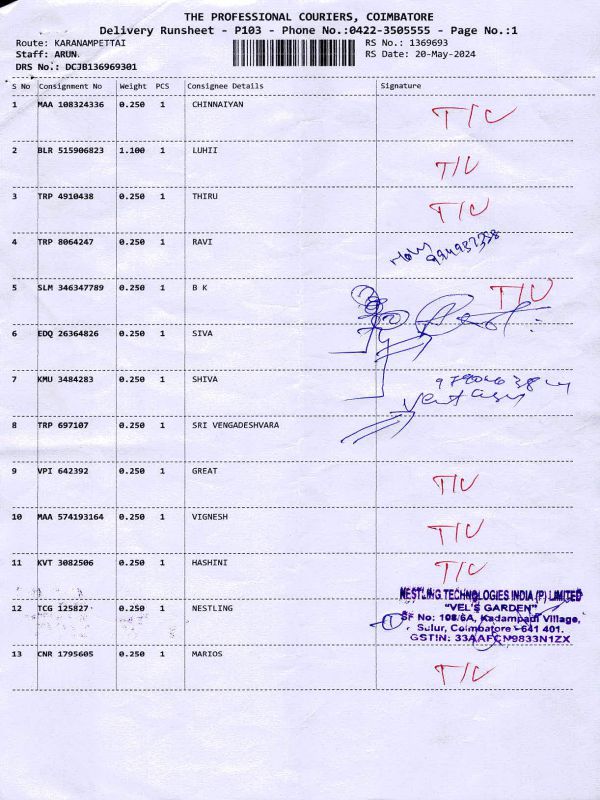 THE PROFESSIONAL COURIERS, COIMBATORE
Delivery Runsheet - P103 - Phone No.:0422-3505555 - Page No.:1
Route: KARANAMPETTAI RS No.: 1369693
Staff: ARUN RS Date: 20-May-2024
DRS No.: DCJB136969301
S No Consignment No Weight PCS Consignee Details Signature
1 MAA 108324336 0.250 1 CHINNAIYAN T/C
2 BLR 515906823 1.100 1 LUHII T/C
3 TRP 4910438 0.250 1 THIRU T/C
4 TRP 8064247 0.250 1 RAVI
5 SLM 346347789 0.250 1 B K T/C
6 EDQ 26364826 0.250 1 SIVA
7 KMU 3484283 0.250 1 SHIVA
8 TRP 697107 0.250 1 SRI VENGADESHVARA
9 VPI 642392 0.250 1 GREAT T/C
10 MAA 574193164 0.250 1 VIGNESH T/C
11 KVT 3082506 0.250 1 HASHINI T/C
NESTLING TECHNOLOGIES INDIA (P) LIMITED
12 TCG 125827 0.250 1 NESTLING "VEL'S GARDEN"
SF No: 108/6A, Kadampadi Village,
Sulur, Coimbatore - 641 401.
GSTIN: 33AAFCN9833N1ZX
13 CNR 1795605 0.250 1 MARIOS T/C